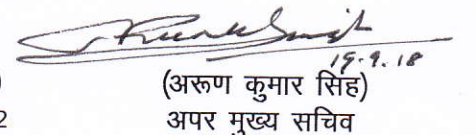 19.9.18
)
(अरूण कुमार सिंह)
2
अपर मुख्य सचिव